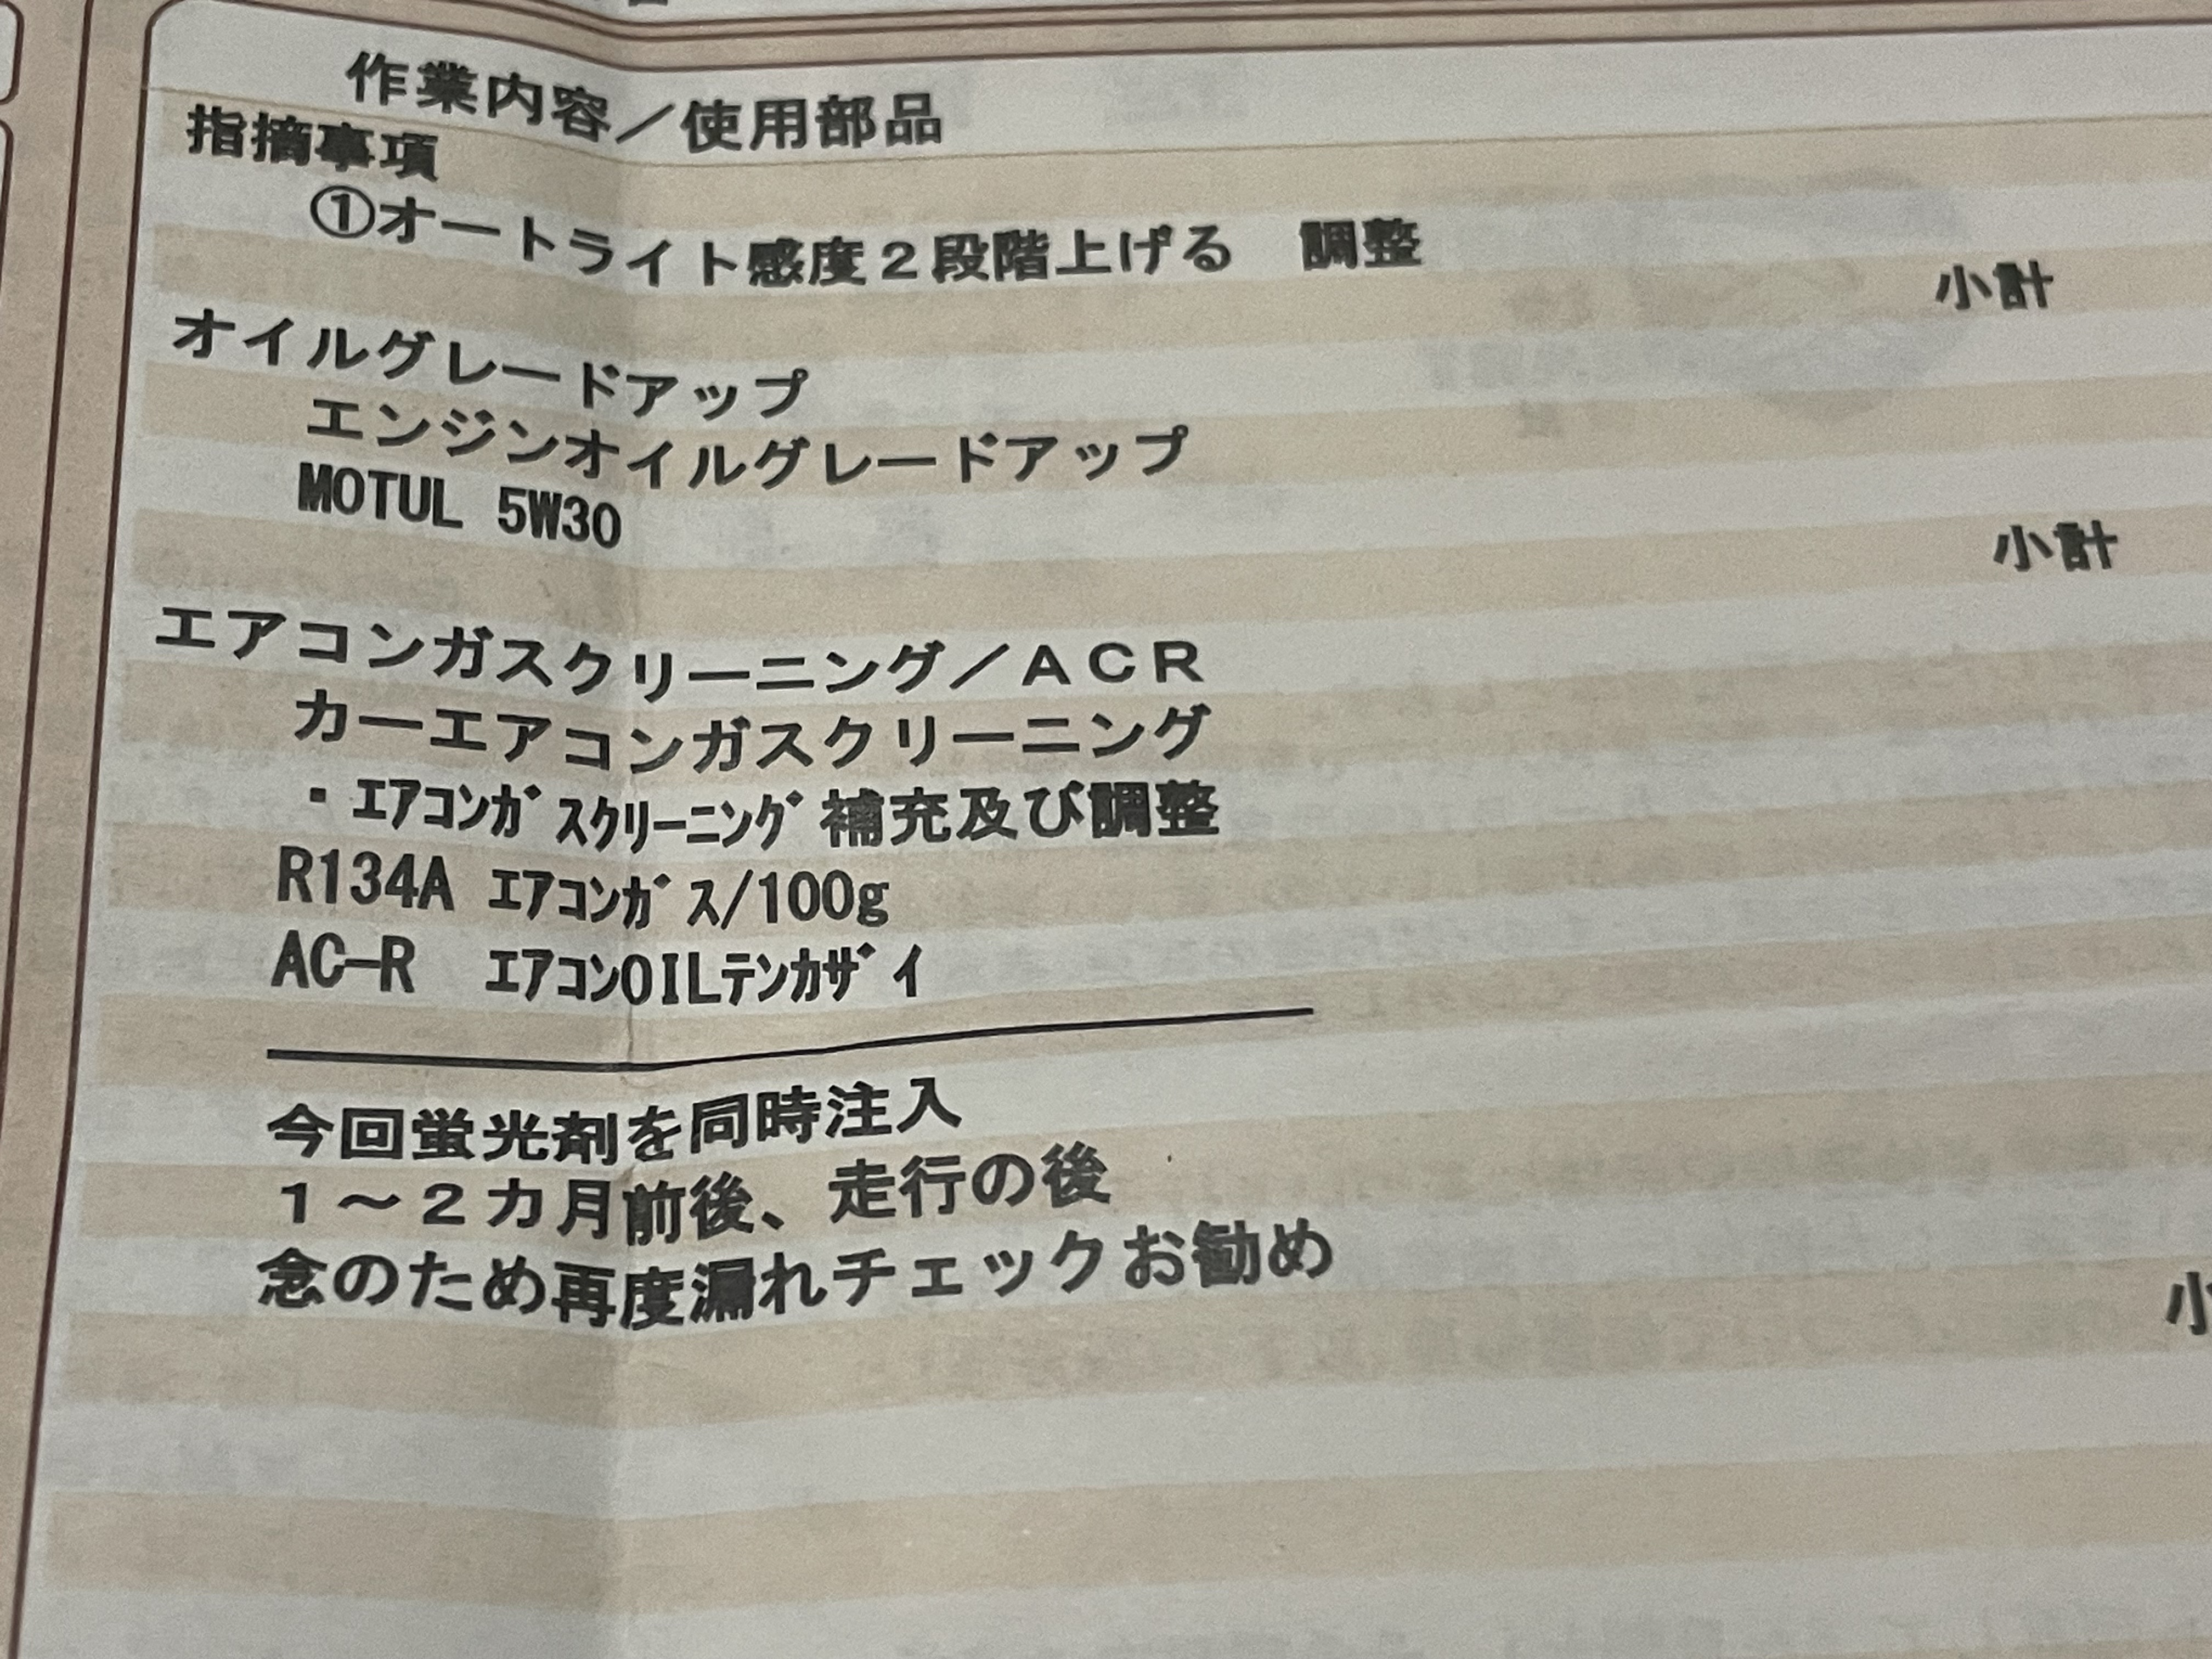 作業内容／使用部品
指摘事項
①オートライト感度２段階上げる　調整
小計
オイルグレードアップ
エンジンオイルグレードアップ
MOTUL 5W30
小計
エアコンガスクリーニング／ＡＣＲ
カーエアコンガスクリーニング
・ｴｱｺﾝｶﾞｽｸﾘｰﾆﾝｸﾞ補充及び調整
R134A ｴｱｺﾝｶﾞｽ/100g
AC-R ｴｱｺﾝOILﾃﾝｶｻﾞｲ
今回蛍光剤を同時注入
１～２カ月前後、走行の後
念のため再度漏れチェックお勧め
小